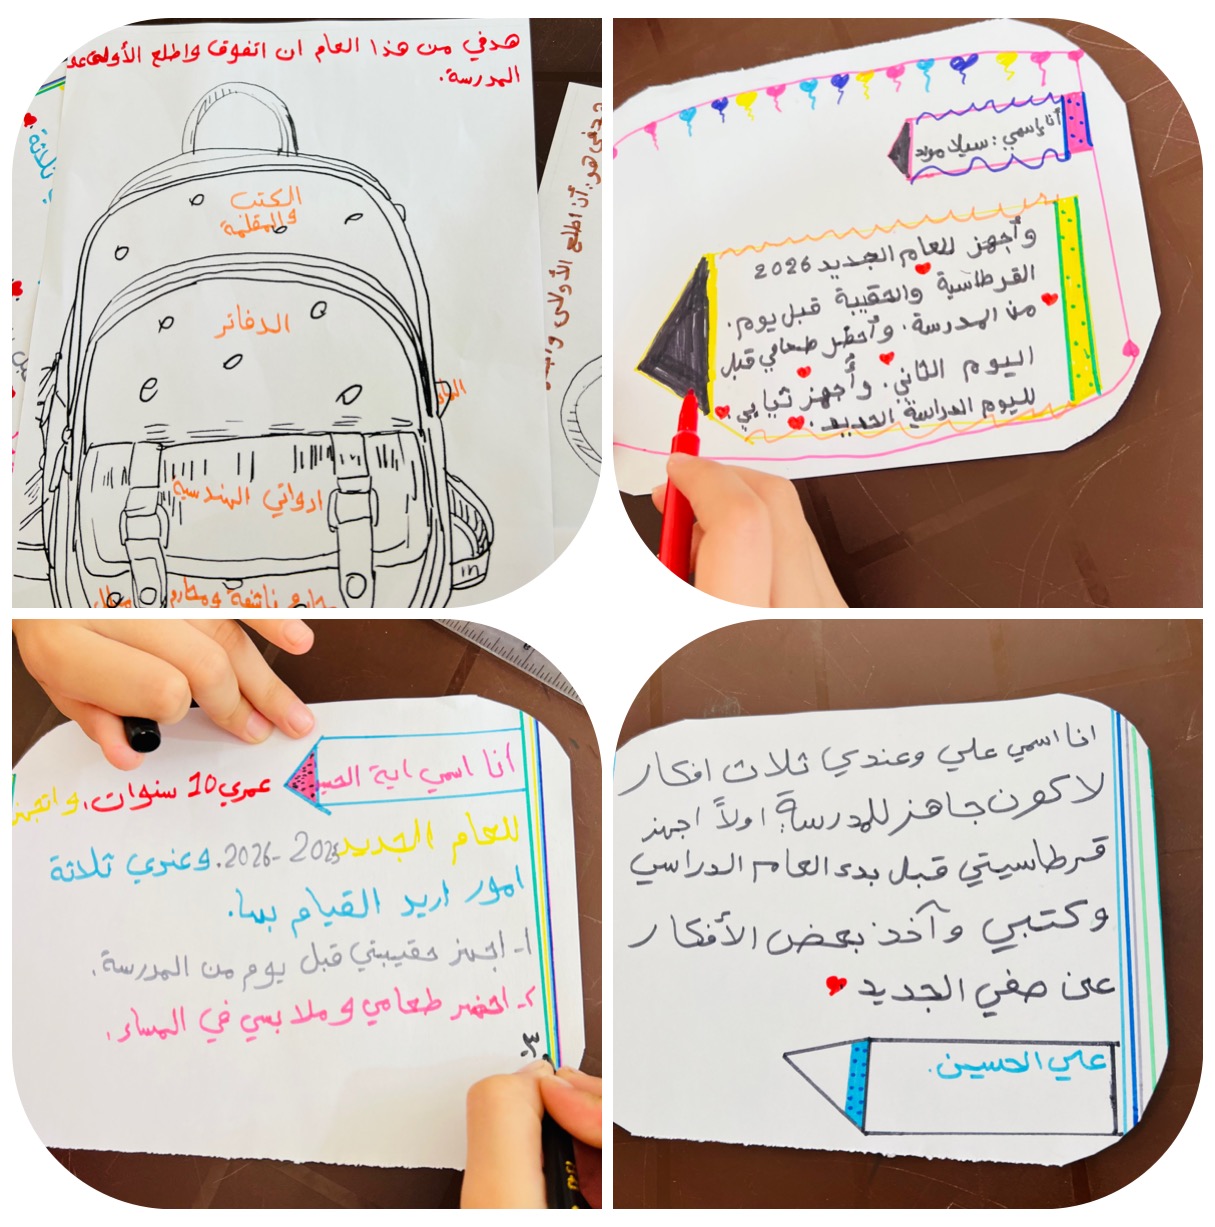 هدفي من هذا العام ان اتفوق واطلع الأولى
المدرسة.
الكتب
والمقلمة
الدفاتر
ادواتي الهندسية
ناشفة ومحارم
ثلاثة
هو: أن اطلع الأولى
أنا إسمي: سيلا مراد
وأجهز للعام الجديد 2026
القرطاسية والحقيبة قبل يوم.
من المدرسة. وأحظر طعامي قبل
اليوم الثاني. وأجهز ثيابي.
لليوم الدراسية الجديد.
أنا اسمي اية
عمري 10 سنوات. واتجهز
للعام الجديد 2025-2026. وعندي ثلاثة
امور اريد القيام بها.
1- اجهز حقيبتي قبل يوم من المدرسة.
2- احضر طعامي وملابسي في المساء.
3-
انا اسمي علي وعندي ثلاث افكار
لاكون جاهز للمدرسة: اولاً اجهز
قرطاسيتي قبل بدء العام الدراسي
وكتبي وآخذ بعض الأفكار
عن صفي الجديد
علي الحسين.